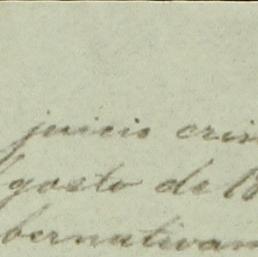 juicio crim
gosto de 18
bernativam